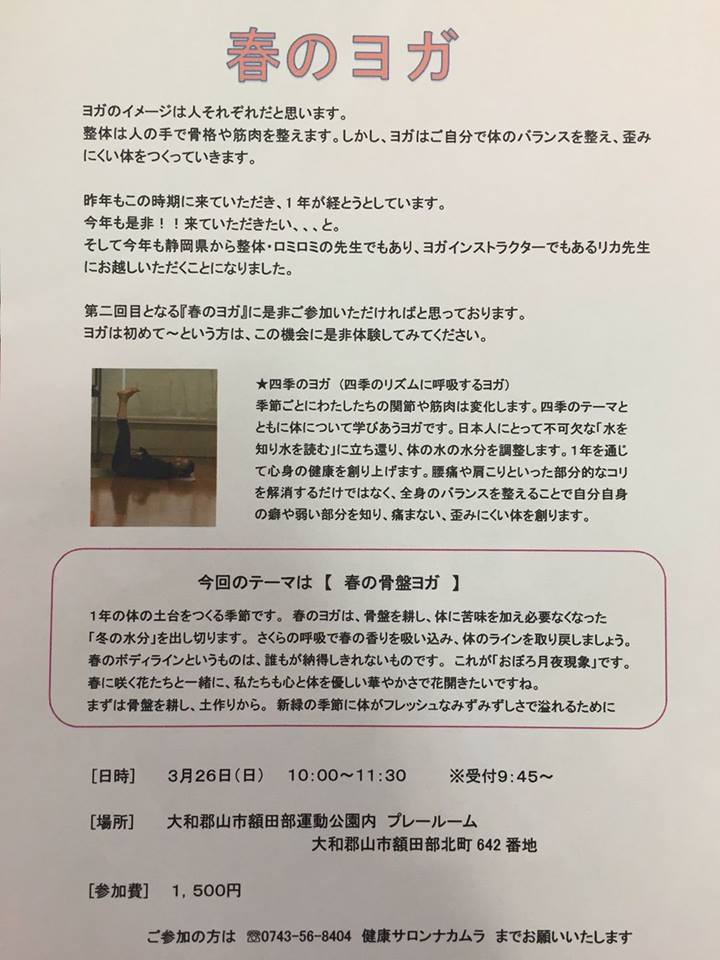 春のヨガ
ヨガのイメージは人それぞれだと思います。
整体は人の手で骨格や筋肉を整えます。しかし、ヨガはご自分で体のバランスを整え、歪み
にくい体をつくっていきます。
昨年もこの時期に来ていただき、1年が経とうとしています。
今年も是非！！来ていただきたい、、、と。
そして今年も静岡県から整体・ロミロミの先生でもあり、ヨガインストラクターでもあるリカ先生
にお越しいただくことになりました。
第二回目となる『春のヨガ』に是非ご参加いただければと思っております。
ヨガは初めて～という方は、この機会に是非体験してみてください。
★四季のヨガ（四季のリズムに呼吸するヨガ）
季節ごとにわたしたちの関節や筋肉は変化します。四季のテーマと
ともに体について学びあうヨガです。日本人にとって不可欠な「水を
知り水を読む」に立ち還り、体の水の水分を調整します。1年を通じ
て心身の健康を創り上げます。腰痛や肩こりといった部分的なコリ
を解消するだけではなく、全身のバランスを整えることで自分自身
の癖や弱い部分を知り、痛まない、歪みにくい体を創ります。
今回のテーマは【 春の骨盤ヨガ 】
1年の体の土台をつくる季節です。 春のヨガは、骨盤を耕し、体に苦味を加え必要なくなった
「冬の水分」を出し切ります。 さくらの呼吸で春の香りを吸い込み、体のラインを取り戻しましょう。
春のボディラインというものは、誰もが納得しきれないものです。 これが「おぼろ月夜現象」です。
春に咲く花たちと一緒に、私たちも心と体を優しい華やかさで花開きたいですね。
まずは骨盤を耕し、土作りから。 新緑の季節に体がフレッシュなみずみずしさで溢れるために
[日時] 3月26日（日） 10:00～11:30 ※受付9:45～
[場所] 大和郡山市額田部運動公園内 プレールーム
大和郡山市額田部北町642番地
[参加費] 1,500円
ご参加の方は ☏0743-56-8404 健康サロンナカムラ までお願いいたします